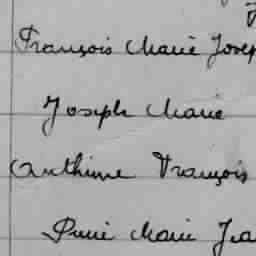 François Marie Josep
Joseph Marie
Anthime François
Pierre Marie Jea